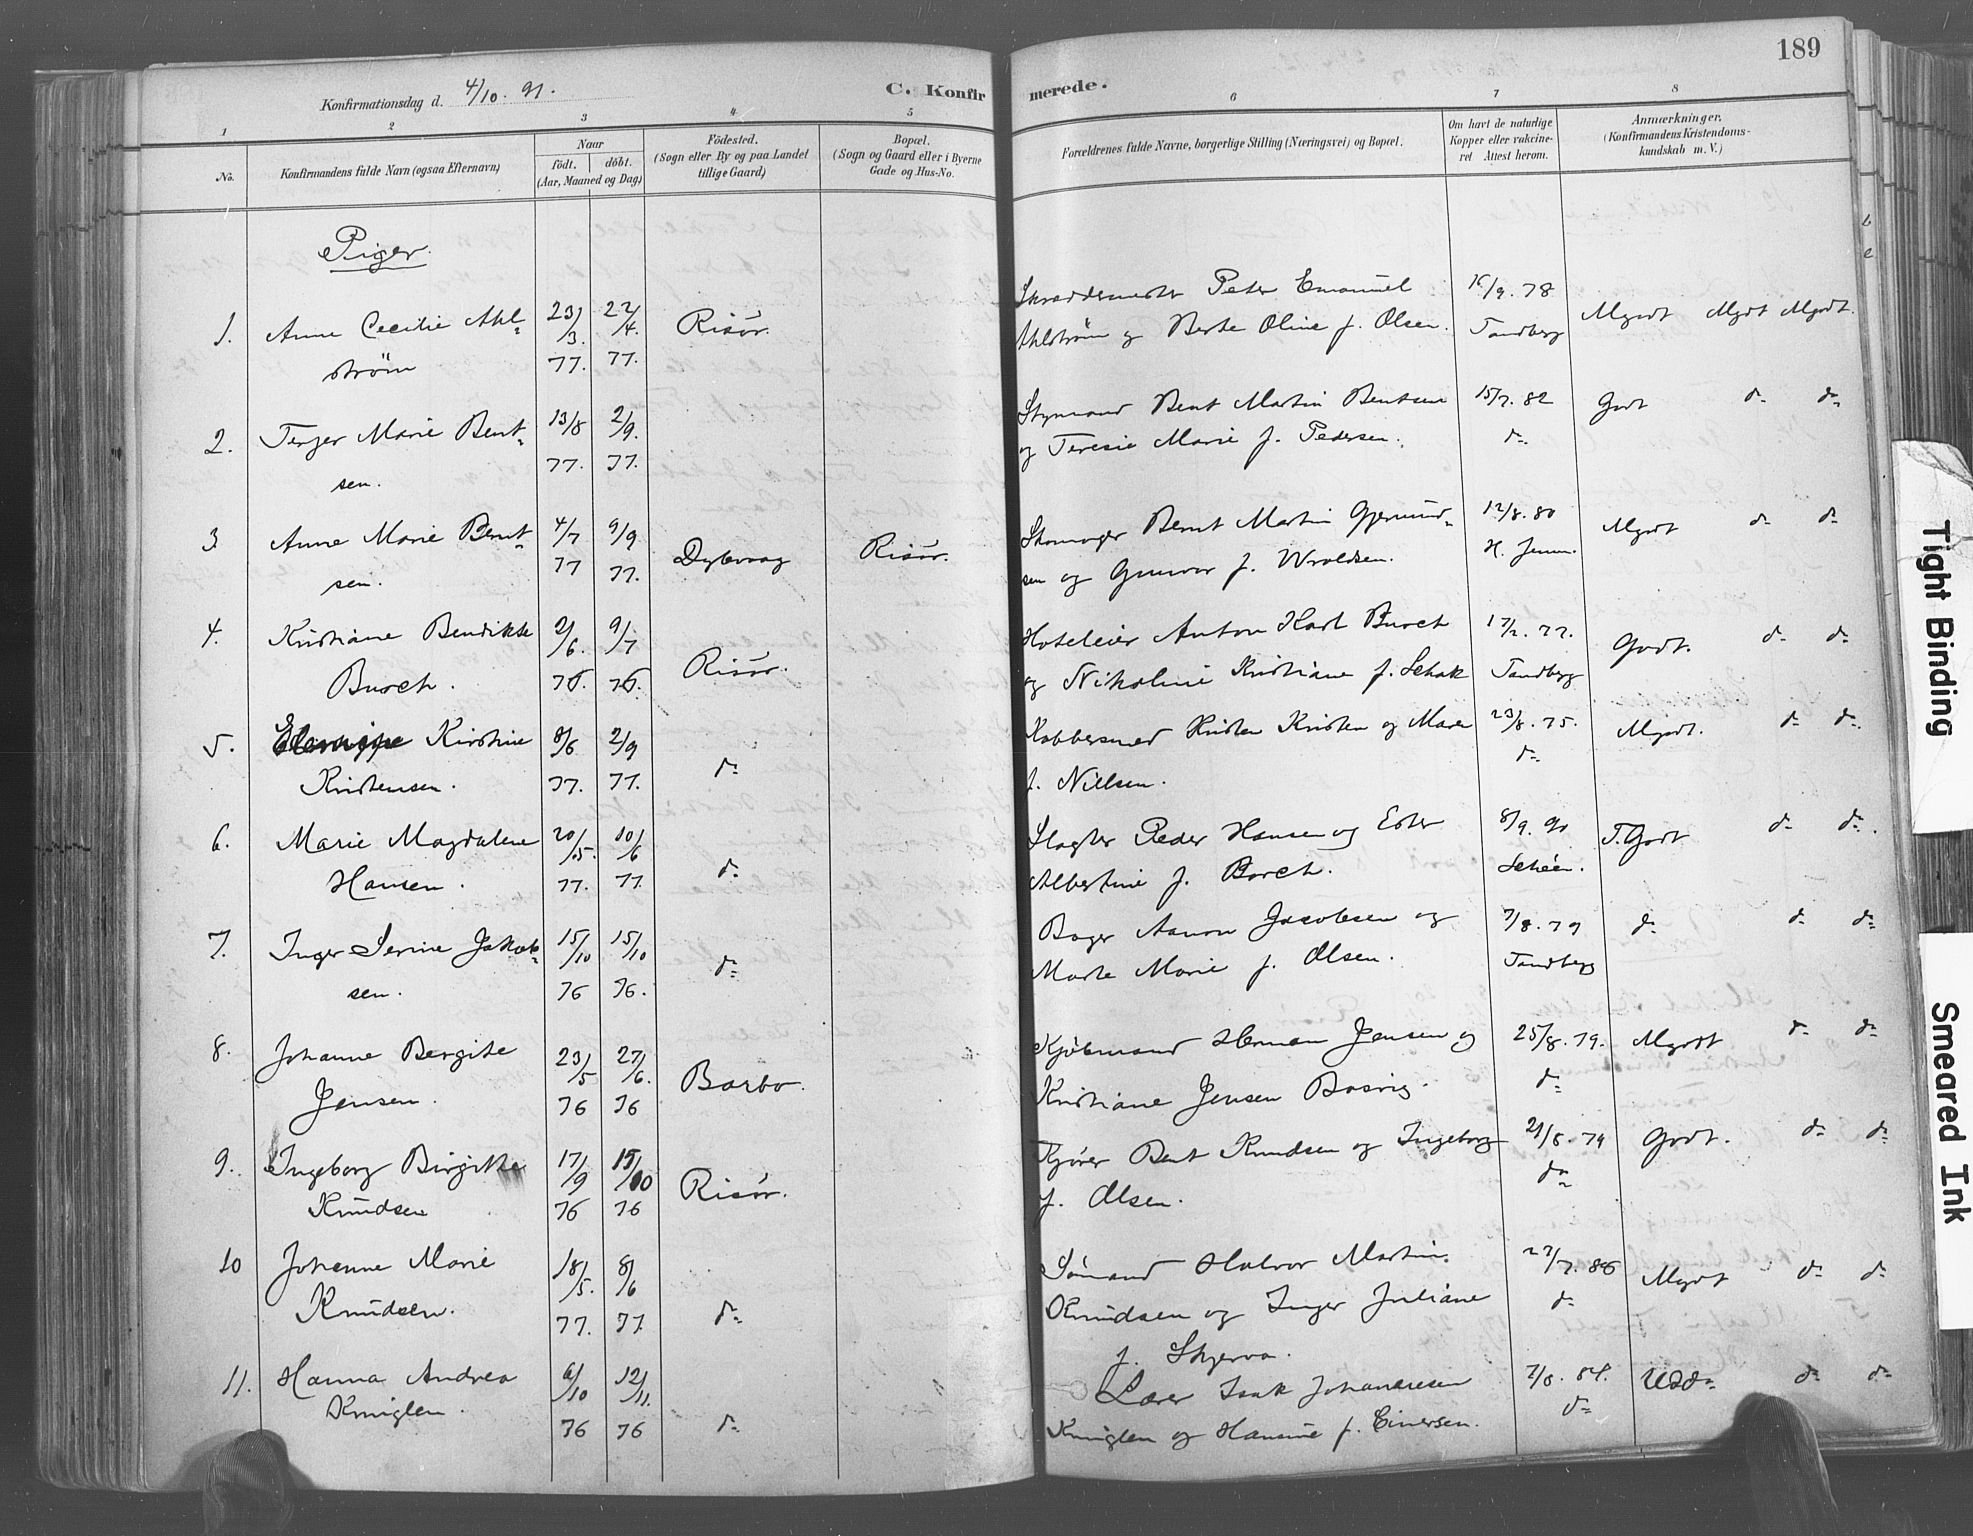 189
Konfirmationsdag d. 4/10. 91.
C. Konfirmerede.
1 2 3 4 5 6 7 8
No.
Konfirmandens fulde Navn (ogsaa Efternavn)
Naar
födt. döbt.
(Aar, Maaned og Dag)
Födested.
(Sogn eller By og paa Landet
tillige Gaard)
Bopæl.
(Sogn og Gaard eller i Byerne
Gade og Hus-No.
Forældrenes fulde Navne, borgerlige Stilling (Næringsvei) og Bopæl.
Om havt de naturlige
Kopper eller vakcine-
ret Attest herom.
Anmærkninger,
(Konfirmandens Kristendoms-
kundskab m. V.)
Piger.
1. Anne Cecilie Ahl-
strøm
23/3. 77. 22/4. 77.
Risør.
Skræddermester Peter Emanuel
Ahlstrøm og Berte Oline f. Olsen.
/9. 78
Tandberg
Mgodt Mgdt Mgodt.
2. Terjer Marie Bent-
sen.
13/8 77. 2/9. 77.
Styrmand Bent Martin Bentsen
og Teresie Marie f. Pedersen.
15/7. 82
d-
Godt d- d-
3. Anne Marie Bernt-
sen.
4/7 77 9/9 77.
Dybvaag
Risør.
Skomager Bernt Martin Gjermund-
sen og Gunvor f. Wroldsen.
12/8. 80
H. Jensen.
Mgodt d- d-
4. Kristiane Bendikte
Burch.
2/6. 76. 9/7 76.
Risør.
Hoteleier Anton Karl Burch
og Nikoline Kristiane f. Schak
17/2. 77.
Tandberg
Godt. d- d-
5. Kirstine
Kristensen.
8/6 77. 2/9 77.
d-
Kobbersmed Kristen Kristen og Maren
f. Nielsen.
23/8. 75.
d-
Mgodt. d- d-
6. Marie Magdalene
Hansen.
20/5. 77. 10/6 77.
d-
Slagter Peder Hansen og Ester
Albertine f. Borch.
8/9. 90
Schéen.
T. Godt d- d-.
7. Inger Serine Jakob-
sen.
15/10 76 15/10 76.
d-
Bager Aanon Jacobsen og
Marte Marie f. Olsen.
7/8. 79
Tandberg
d- d- d-
8. Johanne Bergite
Jensen.
23/5 76 27/6. 76
Barbo.
Kjøbmand Herman Jensen og
Kristiane Jensen Bosvig.
25/8. 79.
d-
Mgodt d- d-
9. Ingeborg Birgitte
Knudsen
17/9 76 15/10 76
Risør.
Kjører Bent Knudsen og Ingeborg
f. Olsen.
21/8. 79
d-
Godt. d- d-
10 Johanne Marie
Knudsen.
18/5. 77. 8/6 77.
d-
Sømand Halvor Martin
Knudsen og Inger Juliane
f. Skjerva.
27/7. 86
d-
Mgdt d- d-
11. Hanna Andrea
Kniglen.
6/10 76 12/11. 76
d-
Lærer Isak Johannesen
Kniglen og Hansine f. Einersen.
7/8. 84.
d-
d- d-
Tight Binding
Smeared Ink